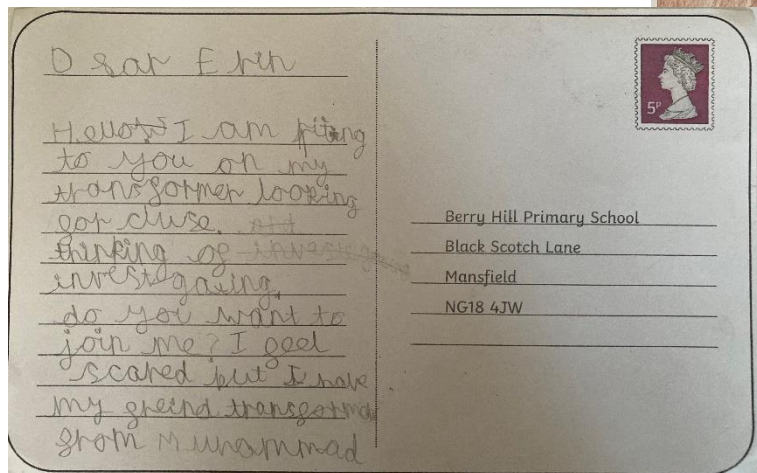 Dear Erin
Hello I am riting
to you on my
transformer looking
for cluse.
thinking of
investgating.
do you want to
join me? I feel
scared but I have
my freind transformer
from Muhammad
5P
Berry Hill Primary School
Black Scotch Lane
Mansfield
NG18 4JW